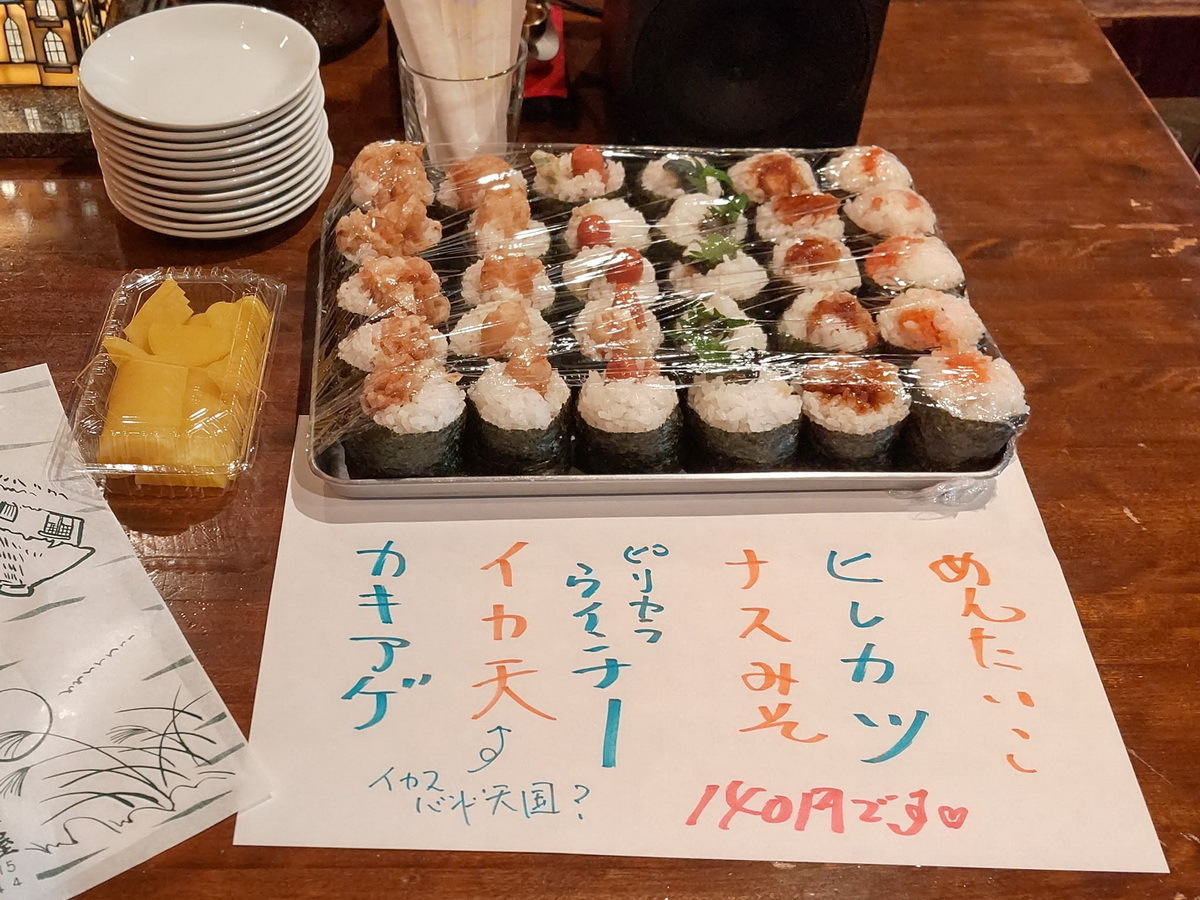 めんたいこ
ヒレカツ
ナスみそ
ピリカラ
ウインナー
イカ天
カキアゲ
イカス
バンド天国?
140円です♡
屋